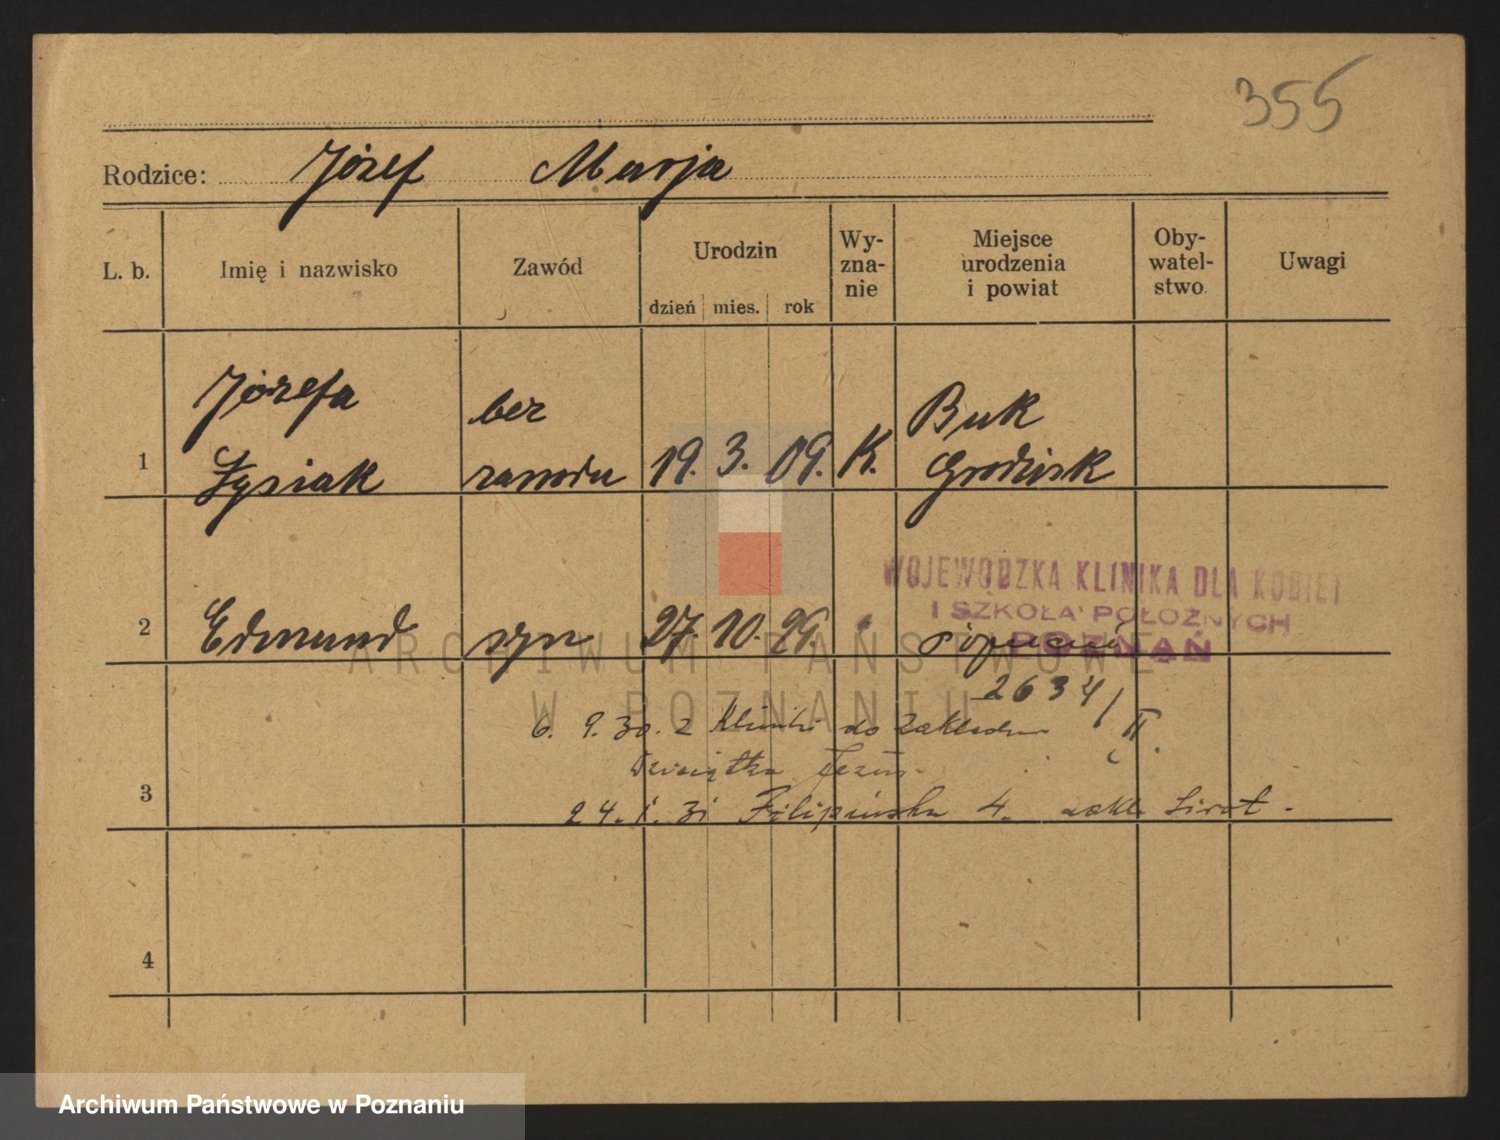 355
Rodzice: Józef Marja
L. b. Imię i nazwisko Zawód Urodzin Wy-zna-nie Miejsce urodzenia i powiat Oby-watel-stwo Uwagi
dzień mies. rok
Józefa bez Buk
1 Łysiak zawodu 19. 3. 09. K. Grodzisk
WOJEWÓDZKA KLINIKA DLA KOBIET
I SZKOŁA POŁOŻNYCH
POZNAŃ
2 Edmund syn 27. 10. 29.
ARCHIWUM PAŃSTWOWE
W POZNANIU
2634/II.
6. 9. 30. z Kliniki do zakładu
Dzieciątka Jezus.
3 24. I. 31 Filipińska 4. zakł. Sierot.
4
Archiwum Państwowe w Poznaniu